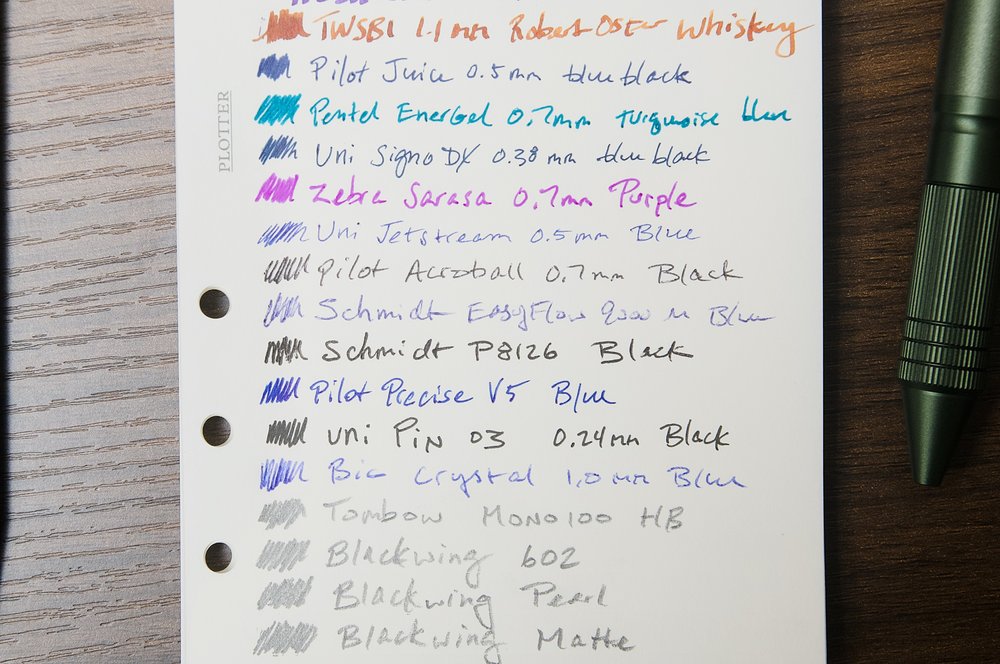 TWSBI 1.1mm Robert Oster Whiskey
Pilot Juice 0.5mm blue black
Pentel EnerGel 0.7mm turquoise blue
Uni Signo DX 0.38mm blue black
Zebra Sarasa 0.7mm Purple
Uni Jetstream 0.5mm Blue
Pilot Acroball 0.7mm Black
Schmidt EasyFlow 9000 M Blue
Schmidt P8126 Black
Pilot Precise V5 Blue
uni Pin 03 0.24mm Black
Bic Crystal 1.0mm Blue
Tombow MONO100 HB
Blackwing 602
Blackwing Pearl
Blackwing Matte
PLOTTER